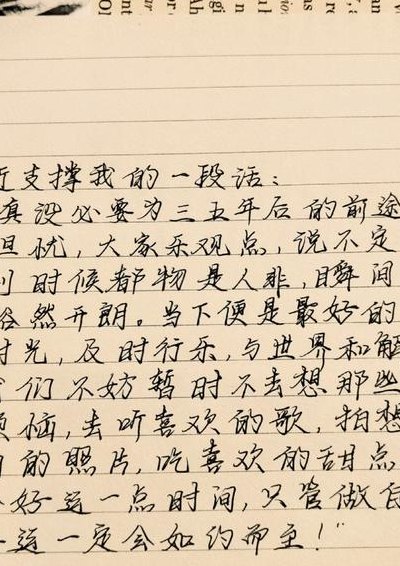 支撑我的一段话：
真没必要为三五年后的前途
担忧，大家乐观点，说不定
时候都物是人非，瞬间
然开朗。当下便是最好的
时光，及时行乐，与世界和解
们不妨暂时不去想那些
烦恼，去听喜欢的歌，拍想
的照片，吃喜欢的甜点
好运一点时间，只管做自
运一定会如约而至！”